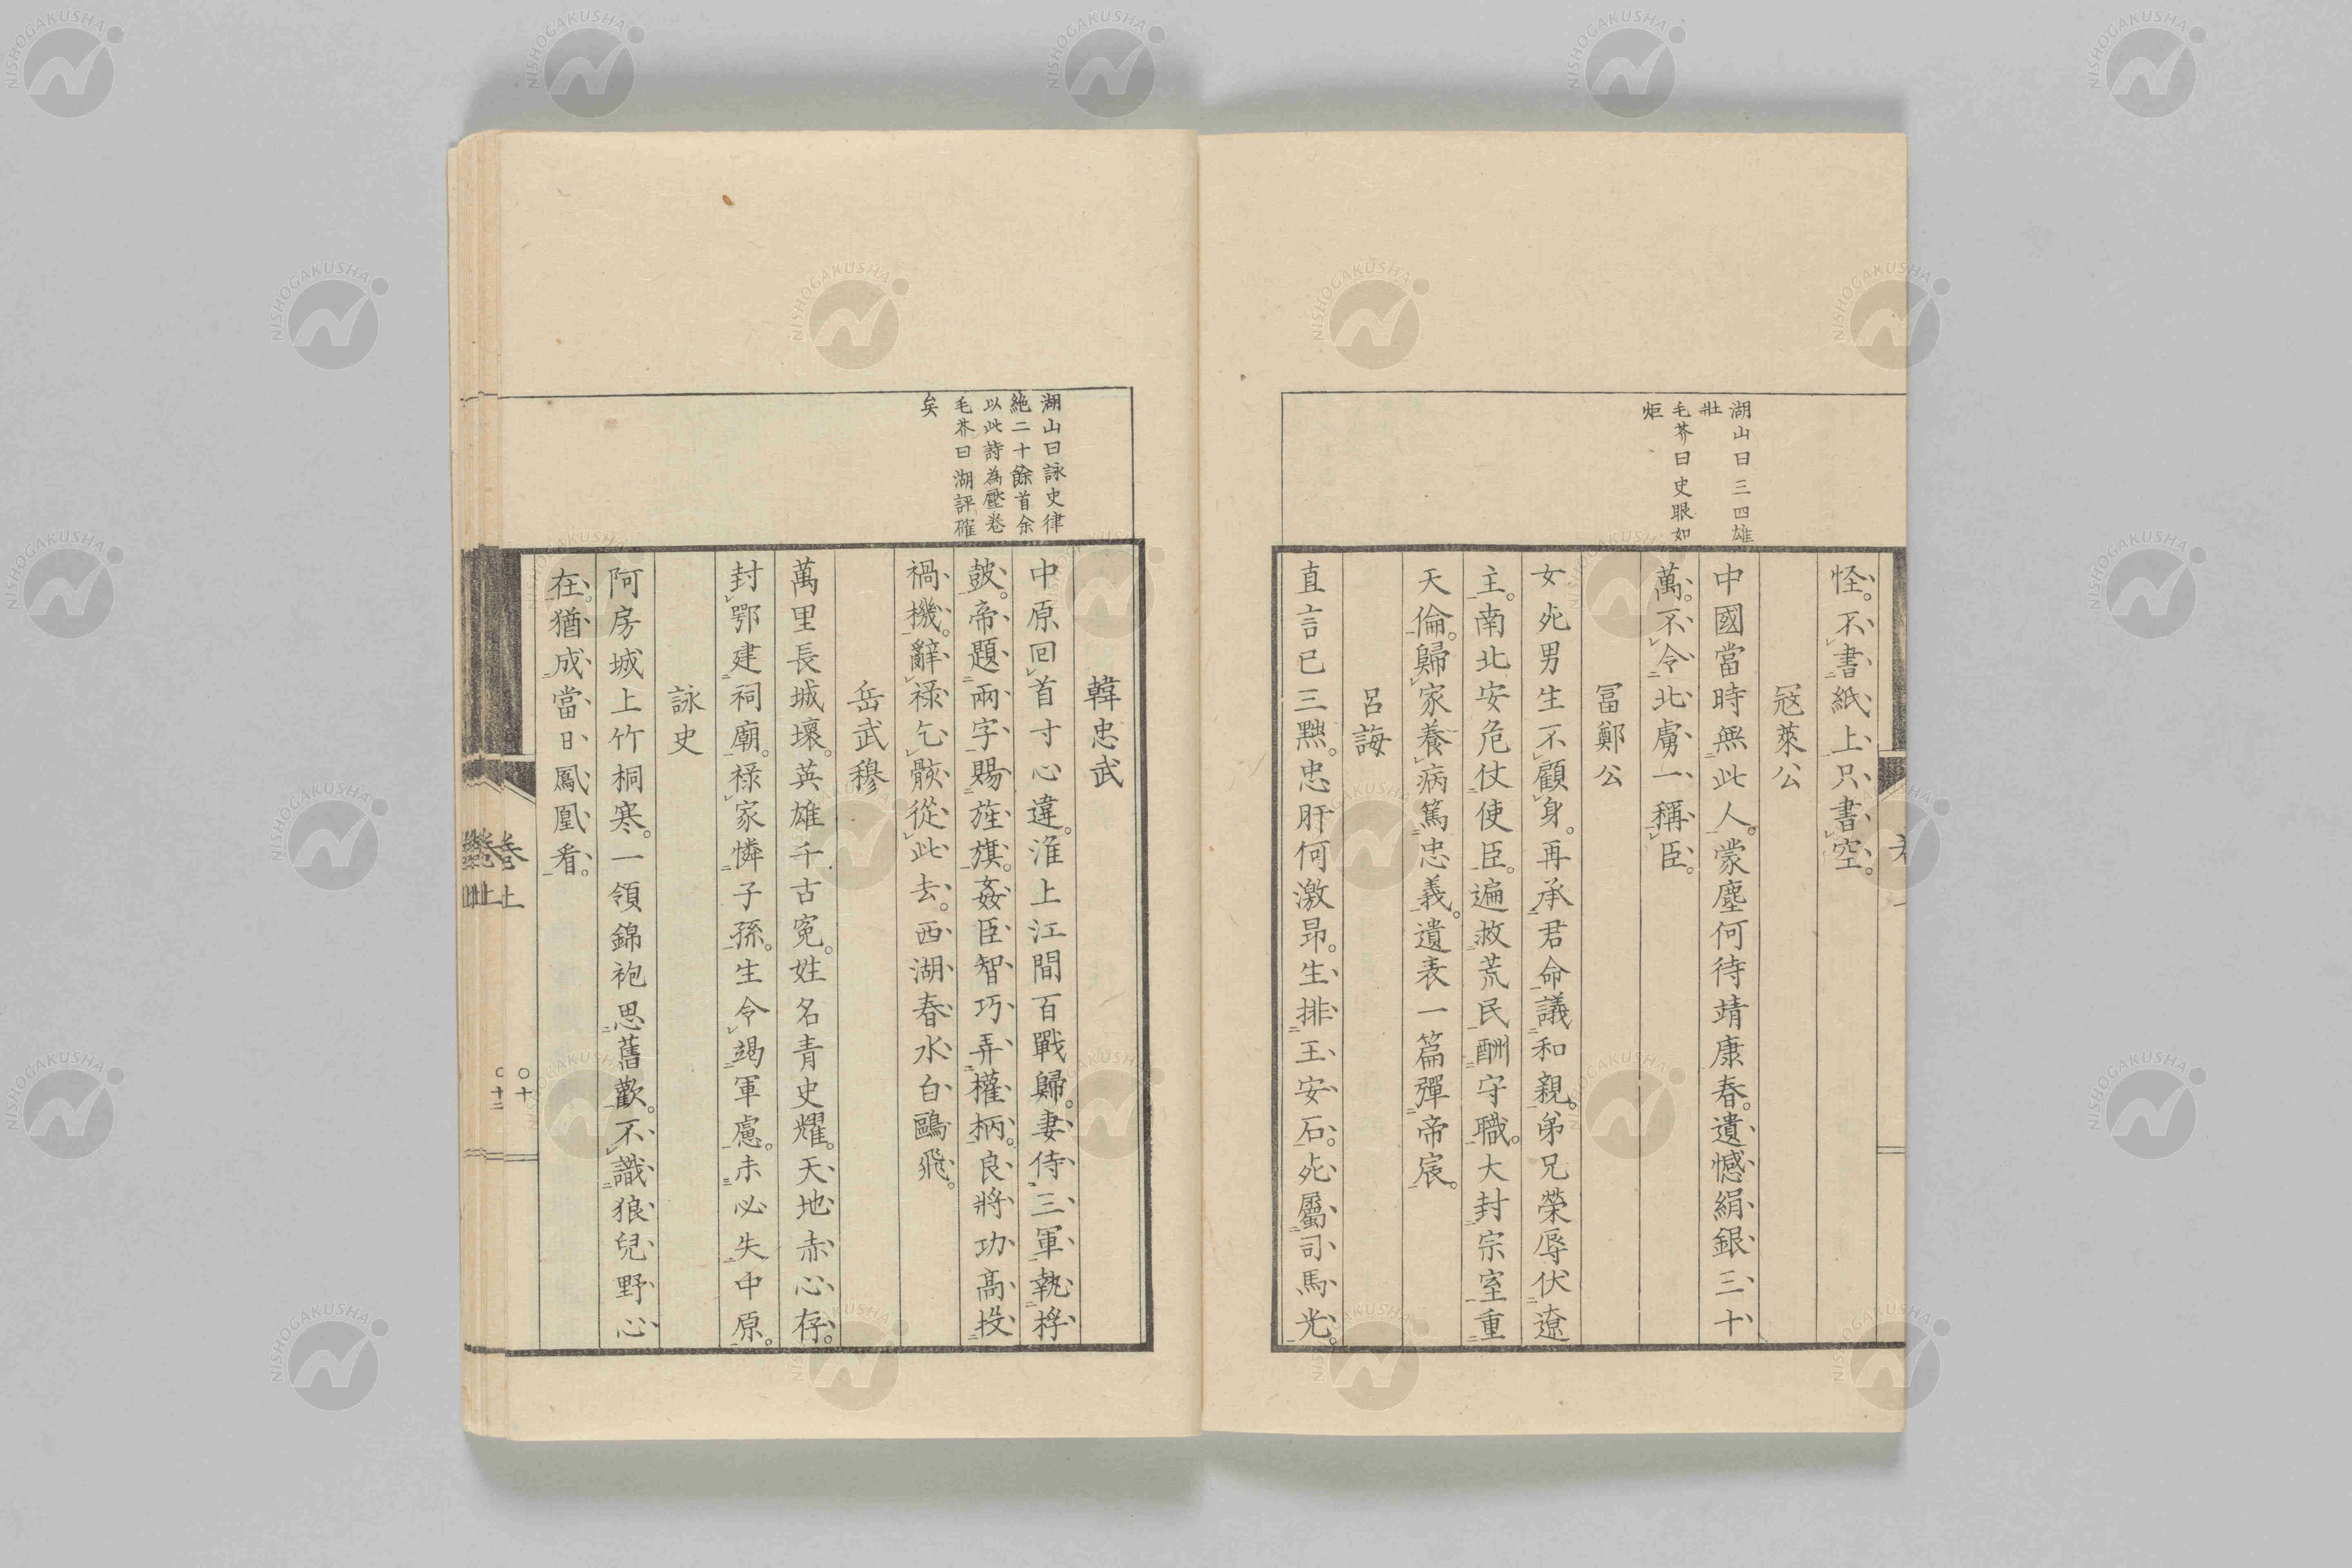 怪。不書紙上只書空。
冦萊公
中國當時無此人。蒙塵何待靖康春。遺憾絹銀三十
萬。不令北虜一稱臣。
冨鄭公
女死男生不顧身。再承君命議和親。弟兄榮辱伏遼
主。南北安危仗使臣。遍救荒民酬守職。大封宗室重
天倫。歸家養病篤忠義。遺表一篇彈帝宸。
呂誨
直言已三黜。忠肝何激昂。生排王安石。死屬司馬光。
湖山曰三四雄
壯
毛芥曰史眼如
炬
韓忠武
中原回首寸心違。淮上江間百戰歸。妻侍三軍執桴
皷。帝題兩字賜旌旗。姦臣智巧弄權柄。良將功高投
禍機。辭祿乞骸從此去。西湖春水白鷗飛。
岳武穆
萬里長城壞。英雄千古寃。姓名青史耀。天地赤心存。
封鄂建祠廟。祿家憐子孫。生令竭軍慮。未必失中原。
詠史
阿房城上竹桐寒。一領錦袍思舊歡。不識狼兒野心
在。猶成當日鳳凰看。
湖山曰詠史律
絶二十餘首余
以此詩為壓卷
毛芥曰湖評確
矣
卷上
〇十
〇十二
NISHOGAKUSHA